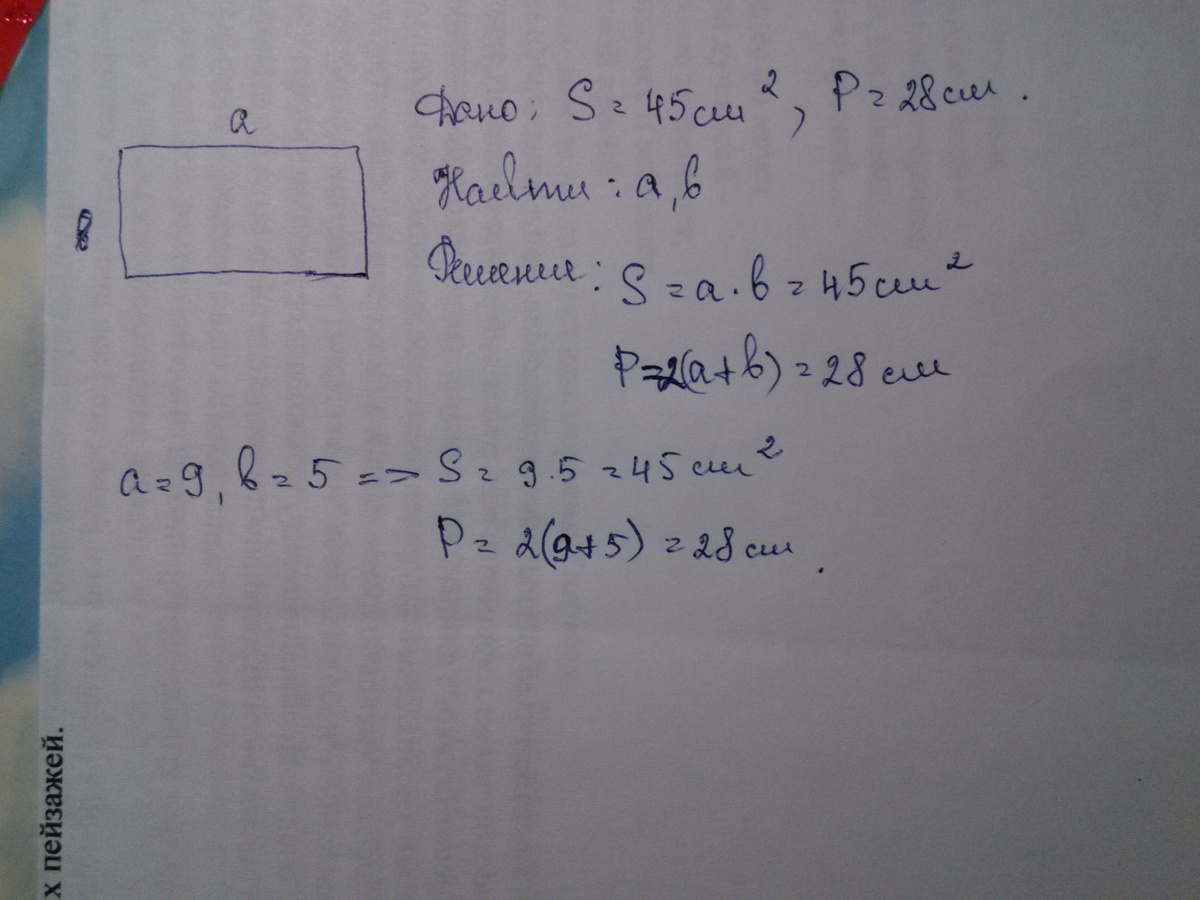 a
Дано: S = 45 см², P = 28 см.
Найти: a, b
Решение: S = a · b = 45 см²
P = 2(a + b) = 28 см
a = 9, b = 5 => S = 9 · 5 = 45 см²
P = 2(9 + 5) = 28 см.
х пейзажей.